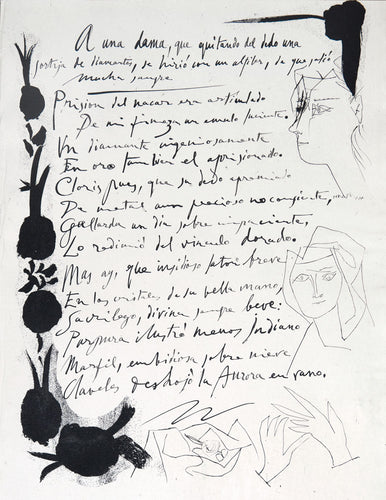 A una dama, que quitando del dedo una
sortija de diamantes, se hirió con un alfiler, de que salió
mucha sangre
Prision del nacar era articulado
De mi firmeza un emulo luciente.
Un diamante ingeniosamente
En oro tambien el aprisionado.
Cloris, pues, que su dedo apremiado
De metal aun precioso no consiente,
Gallarda un dia sobre impaciente,
Lo redimió del vinculo dorado.
Mas ay, que insidioso laton breve
En los cristales de su bella mano,
Sacrilego, divina sangre beve:
Purpura ilustró menos Indiano
Marfil, embidiosa sobre nieve
Claveles deshojó la Aurora en vano.